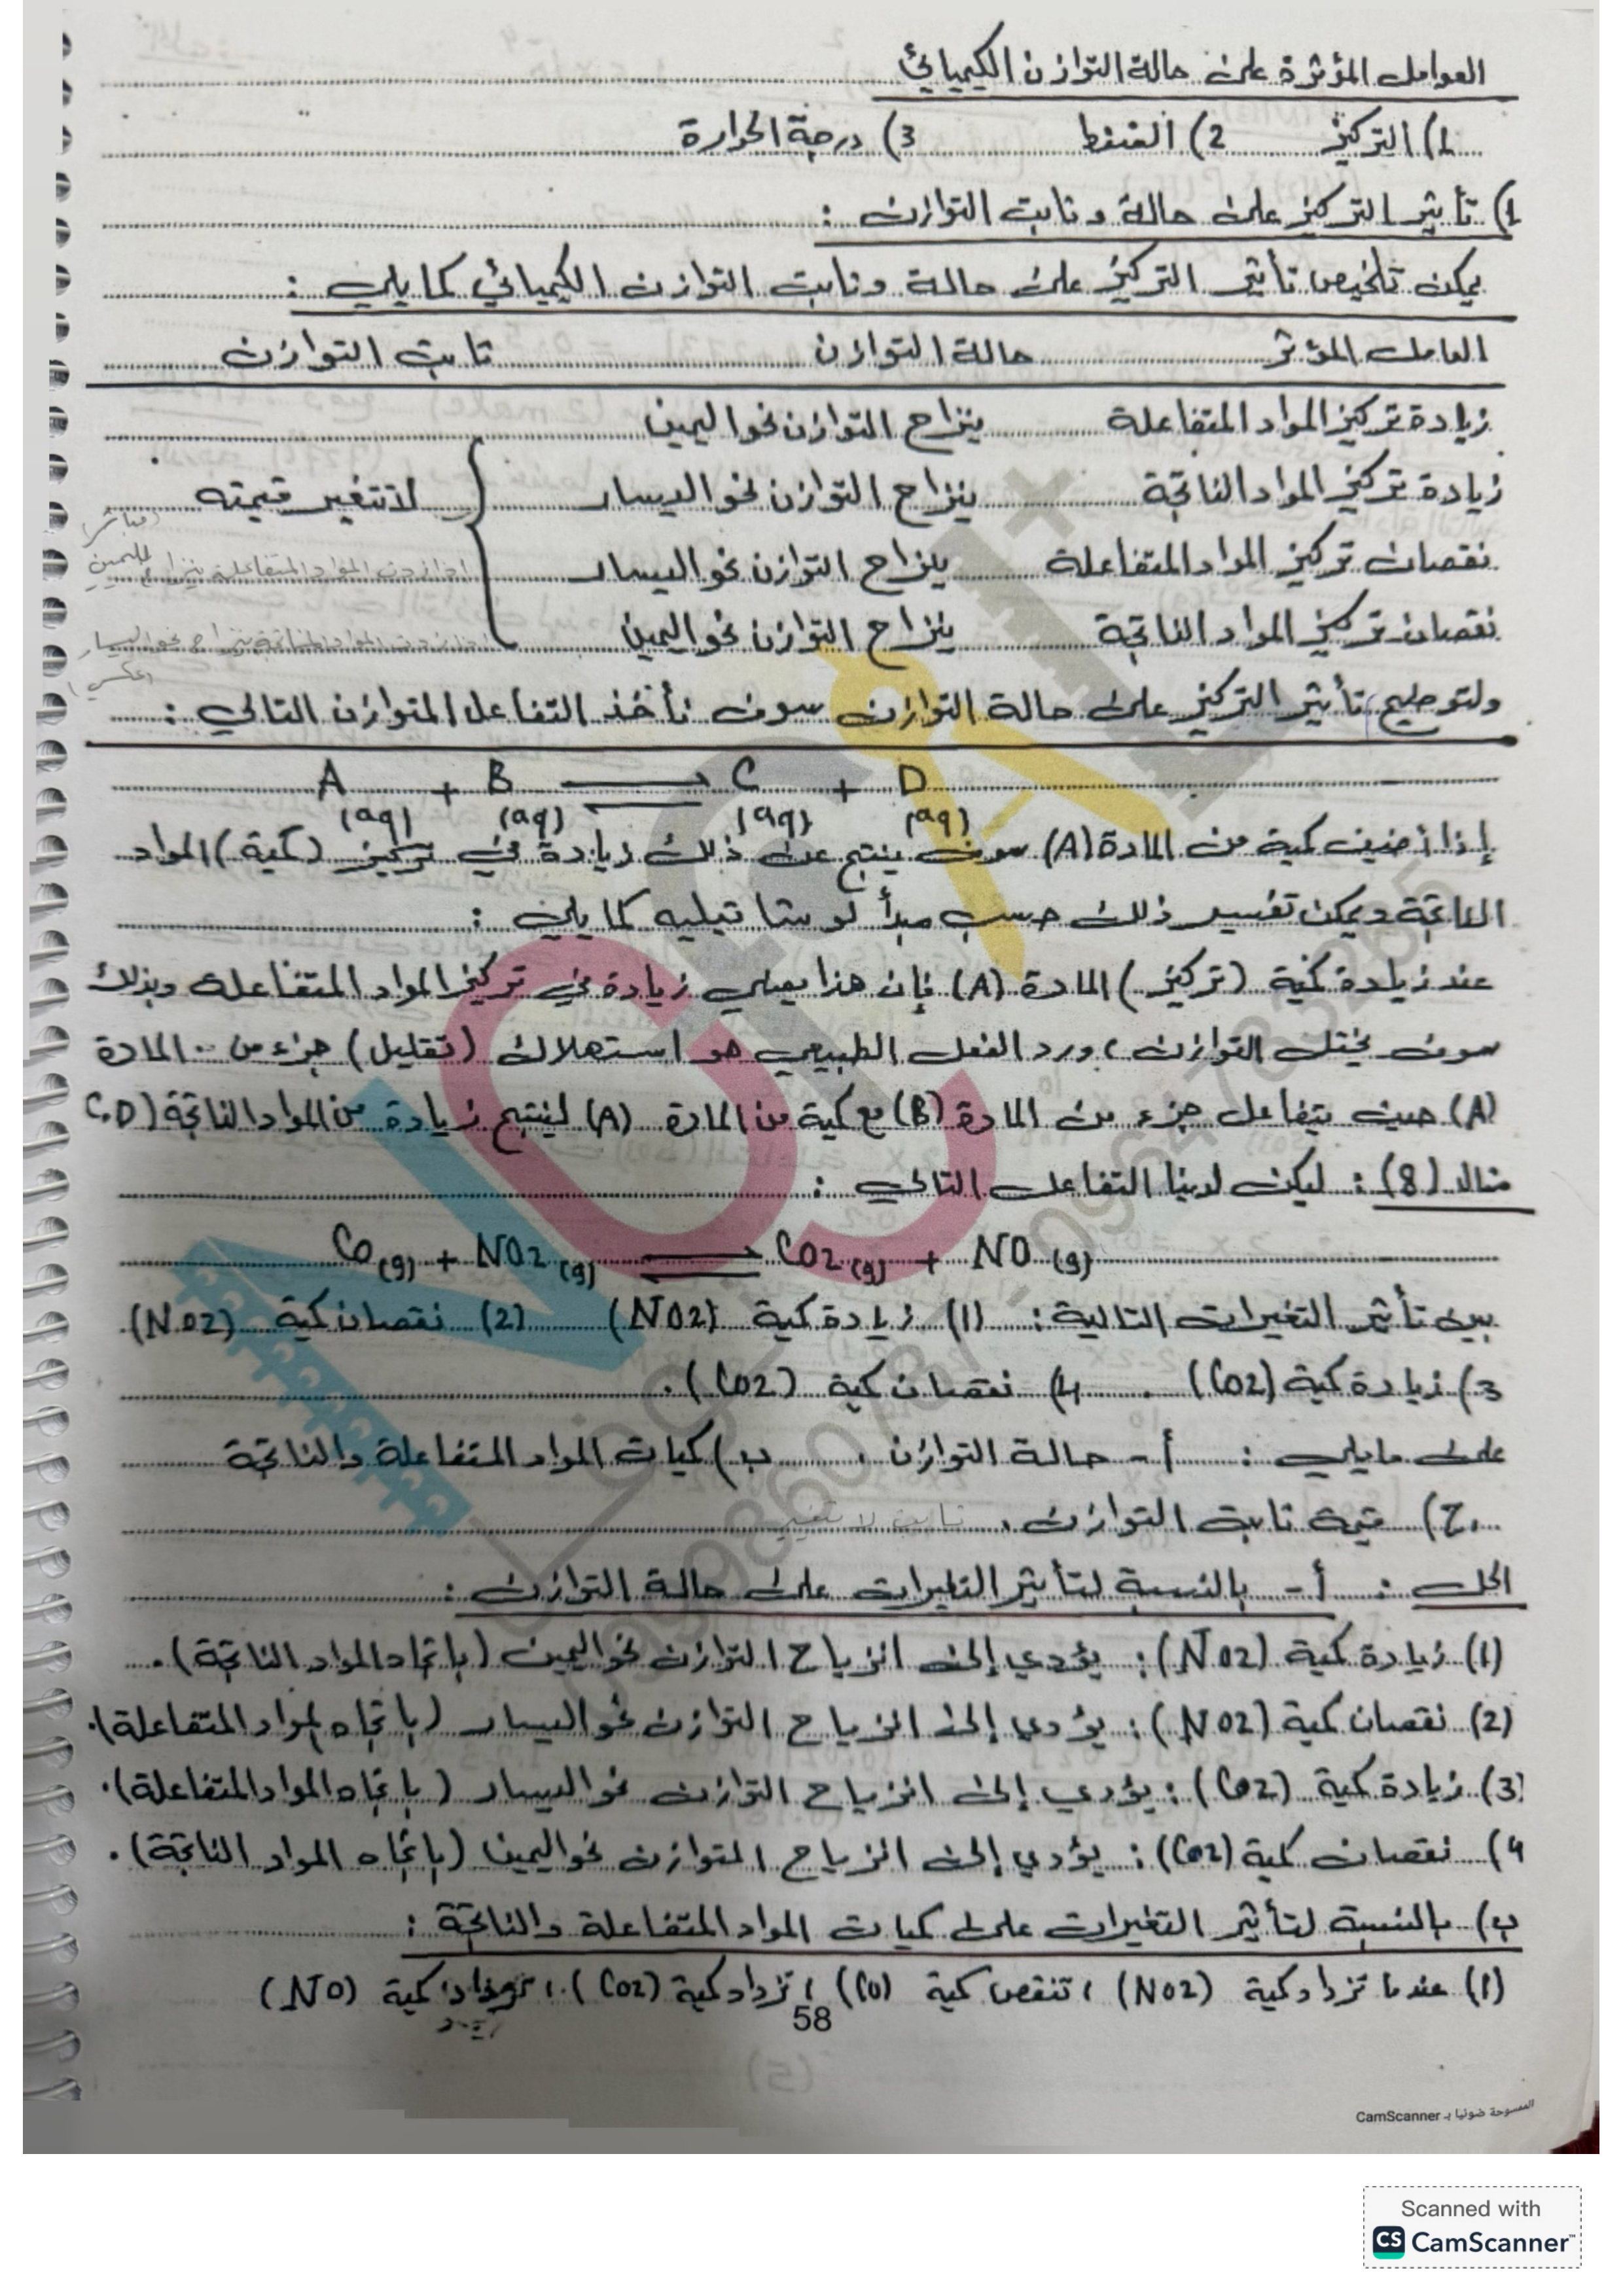 العوامل المؤثرة على حالة التوازن الكيميائي
1) التركيز 2) الضغط 3) درجة الحرارة
1) تأثير التركيز على حالة وثابت التوازن :
يمكن تلخيص تأثير التركيز على حالة وثابت التوازن الكيميائي كما يلي :
العامل المؤثر حالة التوازن ثابت التوازن
زيادة تركيز المواد المتفاعلة ينزاح التوازن نحو اليمين
زيادة تركيز المواد الناتجة ينزاح التوازن نحو اليسار لا تتغير قيمته
(مباشر)
نقصان تركيز المواد المتفاعلة ينزاح التوازن نحو اليسار اذا زدت المواد المتفاعلة ينزاح لليمين
نقصان تركيز المواد الناتجة ينزاح التوازن نحو اليمين اذا زدت المواد الناتجة ينزاح نحو اليسار
(عكسي)
ولتوضيح تأثير التركيز على حالة التوازن سوف نأخذ التفاعل المتوازن التالي :
A(aq) + B(aq) ⇌ C(aq) + D(aq)
إذا أضيف كمية من المادة (A) سوف ينتج عن ذلك زيادة في تركيز (كمية) المواد
الناتجة ويمكن تفسير ذلك حسب مبدأ لوشاتيليه كما يلي :
عند زيادة كمية (تركيز) المادة (A) فإن هذا يعني زيادة في تركيز المواد المتفاعلة وبذلك
سوف يختل التوازن ، ورد الفعل الطبيعي هو استهلاك (تقليل) جزء من .. المادة
(A) حيث يتفاعل جزء من المادة (B) مع كمية من المادة (A) لينتج زيادة من المواد الناتجة (C.D
مثال (8) : ليكن لدينا التفاعل التالي :
Co(g) + NO2(g) ⇌ Co2(g) + NO(g)
بين تأثير التغيرات التالية : (1) زيادة كمية (NO2) (2) نقصان كمية (NO2)
3) زيادة كمية (Co2) . 4) نقصان كمية (Co2) .
على ما يلي : أ - حالة التوازن . ب) كميات المواد المتفاعلة والناتجة
ج) قيمة ثابت التوازن . ثابت لا تتغير
الحل : أ - بالنسبة لتأثير التغيرات على حالة التوازن :
(1) زيادة كمية (NO2) : يؤدي إلى انزياح التوازن نحو اليمين (باتجاه المواد الناتجة) .
(2) نقصان كمية (NO2) : يؤدي إلى انزياح التوازن نحو اليسار (باتجاه لمواد المتفاعلة) .
(3) زيادة كمية (Co2) : يؤدي إلى انزياح التوازن نحو اليسار (باتجاه المواد المتفاعلة) .
4) نقصان كمية (Co2) : يؤدي إلى انزياح التوازن نحو اليمين (باتجاه المواد الناتجة) .
ب) بالنسبة لتأثير التغيرات على كميات المواد المتفاعلة والناتجة :
(1) عندما تزداد كمية (NO2) ، تنقص كمية (Co) ، تزداد كمية (Co2) ، تزداد كمية (NO)
58
الممسوحة ضوئيا بـ CamScanner
Scanned with
CS CamScanner